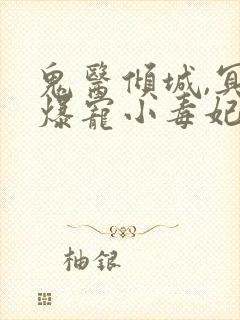 鬼醫傾城,冥
爆寵小毒妃
柚銀